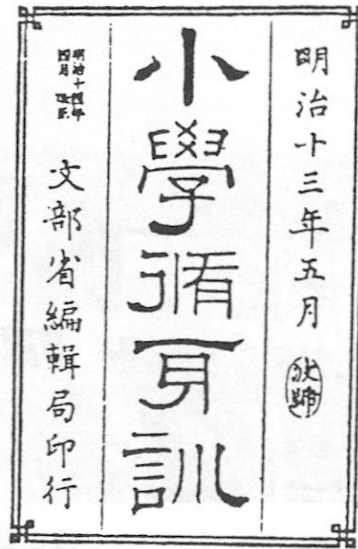 明治十三年五月
小學脩身訓
明治十四年
四月
文部省編輯局印行